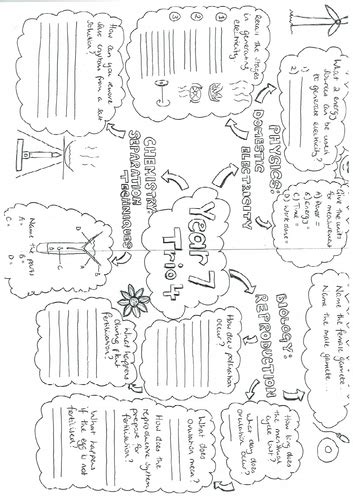 Year 7
Trio 4
PHYSICS:
DOMESTIC
ELECTRICITY
What 2 energy
sources can be used
to generate electricity?
1)
2)
Recall the stages
in generating
electricity
1
2
3
Give the units
for measurements
A) Power =
B) Energy =
C) Time =
D)
CHEMISTRY
SEPARATION
TECHNIQUES
How can you remove
blue crystals from a salt
solution?
Name the parts
A =
B =
C =
D =
A
B
C
D
BIOLOGY:
REPRODUCTION
Name the female gamete.
Name the male gamete.
How long does
the menstrual
cycle last?
What day does
ovulation occur?
How does pollination
occur?
What happens
during plant
fertilisation?
What does
Ovulation mean?
How does the
reproductive system
prepare for
fertilisation?
What happens
if the egg is not
fertilised?